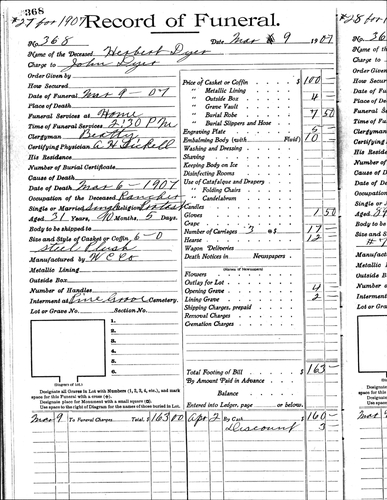 368
#27 for 1907
Record of Funeral.
No. 368 Date Mar 9 1907
Name of the Deceased Herbert Dyer
Charge to John Dyer
Order Given by
How Secured
Date of Funeral Mar 9-07
Place of Death
Funeral Services at Home
Time of Funeral Services 2:30 PM
Clergyman Beatty
Certifying Physician
His Residence
Number of Burial Certificate
Cause of Death
Date of Death Mar 6-1907
Occupation of the Deceased Rancher
Single or Married Single Religion
Aged 31 Years, 10 Months, 5 Days
Body to be shipped to
Size and Style of Casket or Coffin 6-0
Steel Plush
Manufactured by W C Co
Metallic Lining
Outside Box
Number of Handles
Interment at Pine Grove Cemetery.
Lot or Grave No. Section No.
1.
2.
3.
4.
5.
6.
(Diagram of Lot.)
Designate all Graves in Lot with Numbers (1, 2, 3, 4, etc.), and mark
space for this Funeral with a cross
Designate place for Monument with a small square
Use space to the right of Diagram for the names of those buried in Lot.
Price of Casket or Coffin $ 100 —
" Metallic Lining
" Outside Box 4 —
" Grave Vault
" Burial Robe 7 50
" Burial Slippers and Hose
Engraving Plate 5 —
Embalming Body (with Fluid) 10 —
Washing and Dressing
Shaving
Keeping Body on Ice
Disinfecting Rooms
Use of Catafalque and Drapery
" Folding Chairs
" Candelabrum
Candles
Gloves 1 50
Crape
Number of Carriages 3 @ $ 17 —
Hearse 12 —
Wagon Deliveries
Death Notices in Newspapers
(Names of Newspapers)
Flowers
Outlay for Lot
Opening Grave 4 —
Lining Grave 2 —
Shipping Charges, prepaid
Removal Charges
Cremation Charges
Total Footing of Bill $ 163 —
By Amount Paid in Advance
Balance
Entered into Ledger, page or below.
Mar 9 To Funeral Charges Total, $ 163 00 Apr 2 By Cash $ 160 —
Discount 3 —